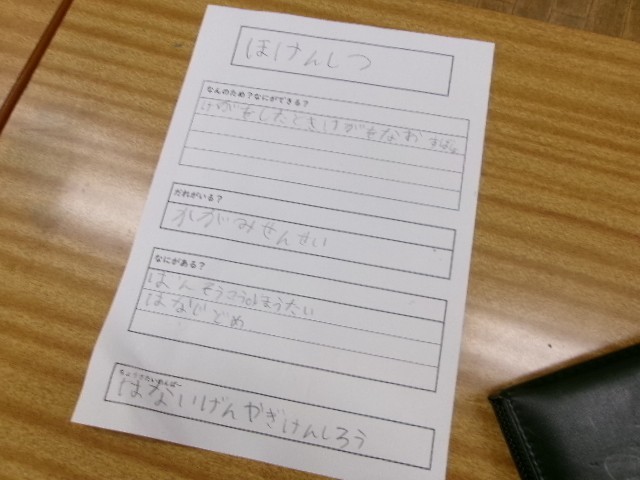 ほけんしつ
なんのため？なにができる？
けがをしたときけがをなお
だれがいる？
かがみせんせい
なにがある？
ばんそうこう ほうたい
はなぢどめ
ちょうさたいめんばー
はないげん やぎけんしろう